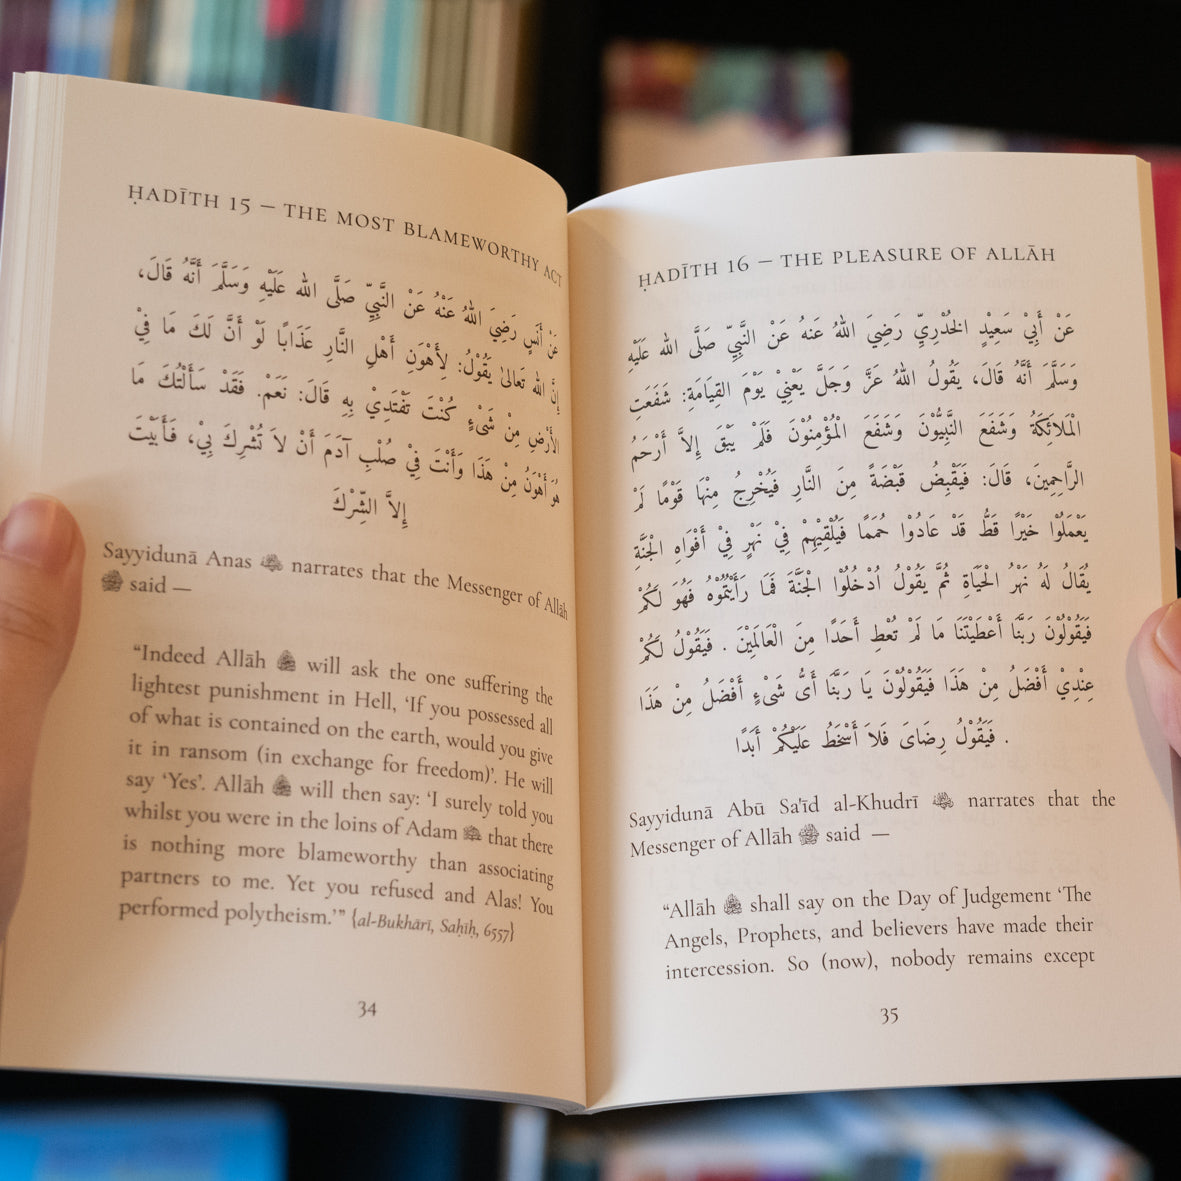 ḤADĪTH 15 – THE MOST BLAMEWORTHY ACT
عَنْ أَنَسٍ رَضِيَ اللهُ عَنْهُ عَنْ النَّبِيِّ صَلَّى الله عَلَيْهِ وَسَلَّمَ أَنَّهُ قَالَ،
إِنَّ الله تَعالىٰ يَقُوْلُ: لِأَهْوَنِ أَهْلِ النَّارِ عَذَابًا لَوْ أَنَّ لَكَ مَا فِيْ
الأَرْضِ مِنْ شَىْءٍ كُنْتَ تَفْتَدِيْ بِهِ قَالَ: نَعَمْ. فَقَدْ سَأَلْتُكَ مَا
هُوَ أَهْوَنُ مِنْ هَذَا وَأَنْتَ فِيْ صُلْبِ آدَمَ أَنْ لاَ تُشْرِكَ بِيْ، فَأَبَيْتَ
إِلاَّ الشِّرْكَ
Sayyidunā Anas ؓ narrates that the Messenger of Allāh
ﷺ said —
“Indeed Allāh will ask the one suffering the
lightest punishment in Hell, ‘If you possessed all
of what is contained on the earth, would you give
it in ransom (in exchange for freedom)’. He will
say ‘Yes’. Allāh will then say: ‘I surely told you
whilst you were in the loins of Adam that there
is nothing more blameworthy than associating
partners to me. Yet you refused and Alas! You
performed polytheism.’” {al-Bukhārī, Saḥīḥ, 6557}
34
ḤADĪTH 16 – THE PLEASURE OF ALLĀH
عَنْ أَبِيْ سَعِيْدٍ الخُدْرِيِّ رَضِيَ اللهُ عَنهُ عَنْ النَّبِيِّ صَلَّى الله عَلَيْهِ
وَسَلَّمَ أَنَّهُ قَالَ، يَقُولُ اللهُ عَزَّ وَجَلَّ يَعْنِيْ يَوْمَ القِيَامَةِ: شَفَعَتِ
الْمَلائِكَةُ وَشَفَعَ النَّبِيُّوْنَ وَشَفَعَ الْمُؤْمِنُوْنَ فَلَمْ يَبْقَ إِلاَّ أَرْحَمُ
الرَّاحِمِينَ، قَالَ: فَيَقْبِضُ قَبْضَةً مِنَ النَّارِ فَيُخْرِجُ مِنْهَا قَوْمًا لَمْ
يَعْمَلُوْا خَيْرًا قَطُّ قَدْ عَادُوْا حُمَمًا فَيُلْقِيْهِمْ فِيْ نَهْرٍ فِيْ أَفْوَاهِ الْجَنَّةِ
يُقَالُ لَهُ نَهْرُ الْحَيَاةِ ثُمَّ يَقُوْلُ اُدْخُلُوْا الْجَنَّةَ فَمَا رَأَيْتُمُوْهُ فَهُوَ لَكُمْ
فَيَقُوْلُوْنَ رَبَّنَا أَعْطَيْتَنَا مَا لَمْ تُعْطِ أَحَدًا مِنَ الْعَالَمِيْنَ . فَيَقُوْلُ لَكُمْ
عِنْدِيْ أَفْضَلُ مِنْ هَذَا فَيَقُوْلُوْنَ يَا رَبَّنَا أَىُّ شَىْءٍ أَفْضَلُ مِنْ هَذَا
. فَيَقُوْلُ رِضَاىَ فَلاَ أَسْخَطُ عَلَيْكُمْ أَبَدًا
Sayyidunā Abū Sa'īd al-Khudrī ؓ narrates that the
Messenger of Allāh ﷺ said —
“Allāh shall say on the Day of Judgement ‘The
Angels, Prophets, and believers have made their
intercession. So (now), nobody remains except
35